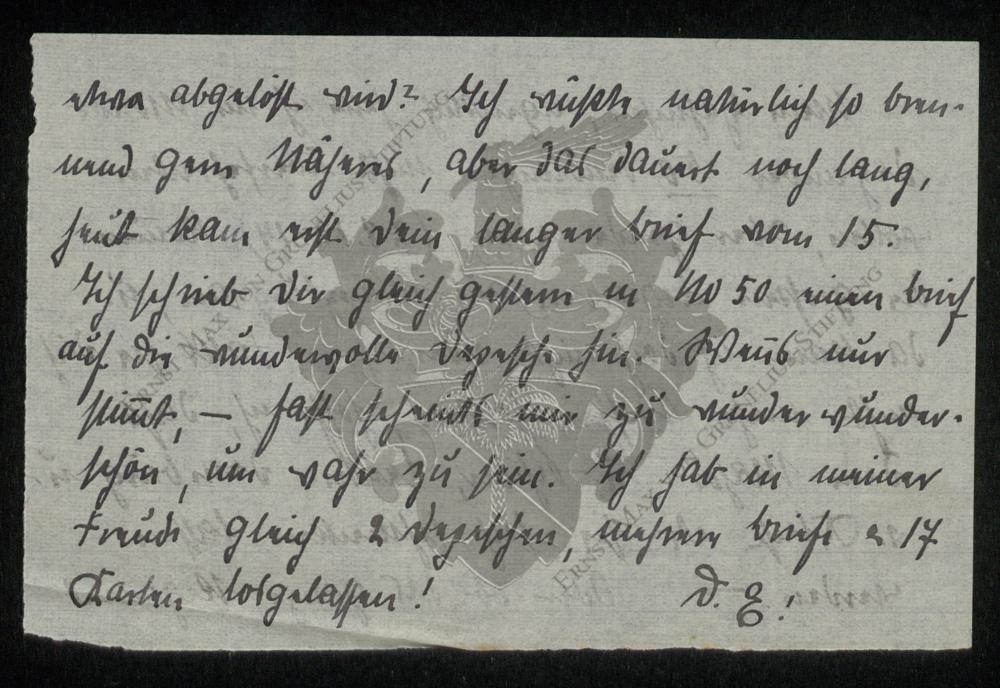 etwa abgelöst wird? Ich wüßte natürlich so bren-
nend gern Näheres, aber das dauert noch lang,
heut kam erst Dein langer Brief vom 15.
Ich schrieb Dir gleich gestern in No 50 einen Brief
auf die wundervolle Depesche hin. Wenns nur
stimmt, — fast scheints mir zu wunderwunder-
schön, um wahr zu sein. Ich hab in meiner
Freude gleich 2 Depeschen, mehrere Briefe u 17
Karten losgelassen! D. E.!
ERNST MAX VON GRUNELIUS-STIFTUNG